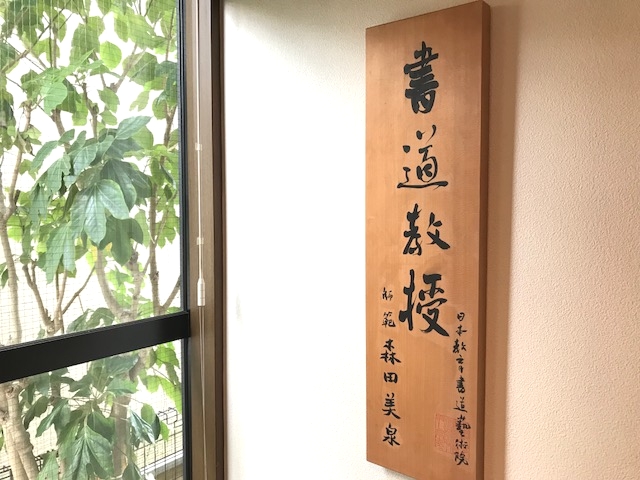 書道教授
日本教育書道藝術院
師範 森田美泉